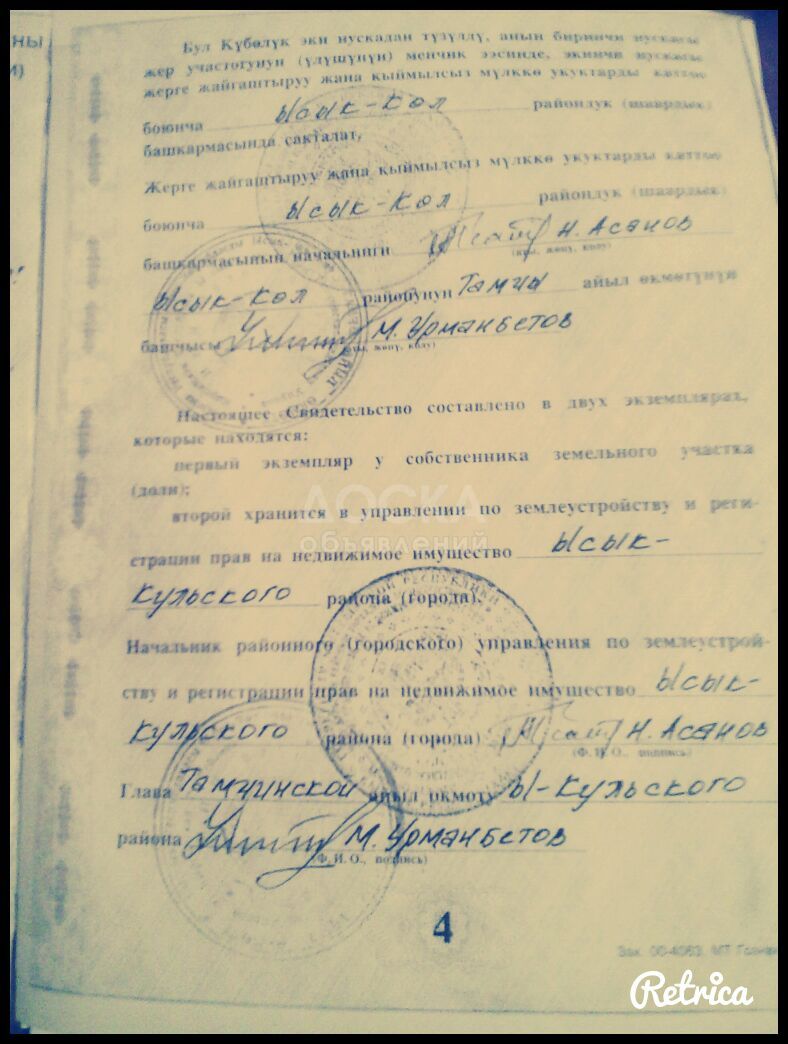 НЫ
Бул Күбөлүк эки нускадан түзүлдү, анын биринчи нускасы
жер участогунун (үлүшүнүн) менчик ээсинде, экинчи нускасы
жерге жайгаштыруу жана кыймылсыз мүлккө укуктарды каттоо
боюнча Ысык-Көл райондук (шаардык)
башкармасында сакталат.
Жерге жайгаштыруу жана кыймылсыз мүлккө укуктарды каттоо
боюнча Ысык-Көл райондук (шаардык)
башкармасынын начальниги Н. Асанов
(аты, жөнү, колу)
Ысык-Көл районунун Тамчы айыл өкмөтүнүн
башчысы М. Урманбетов
(аты, жөнү, колу)
Настоящее Свидетельство составлено в двух экземплярах,
которые находятся:
первый экземпляр у собственника земельного участка
(доли);
второй хранится в управлении по землеустройству и реги-
страции прав на недвижимое имущество Ысык-
Кульского района (города).
Начальник районного (городского) управления по землеустрой-
ству и регистрации прав на недвижимое имущество Ысык-
Кульского района (города) Н. Асанов
(Ф.И.О., подпись)
Глава Тамчинской айыл окмоту Ы-Кульского
района М. Урманбетов
(Ф.И.О., подпись)
4
Зак. 00-4063. МТ
ДОСКА
объявлений
Retrica